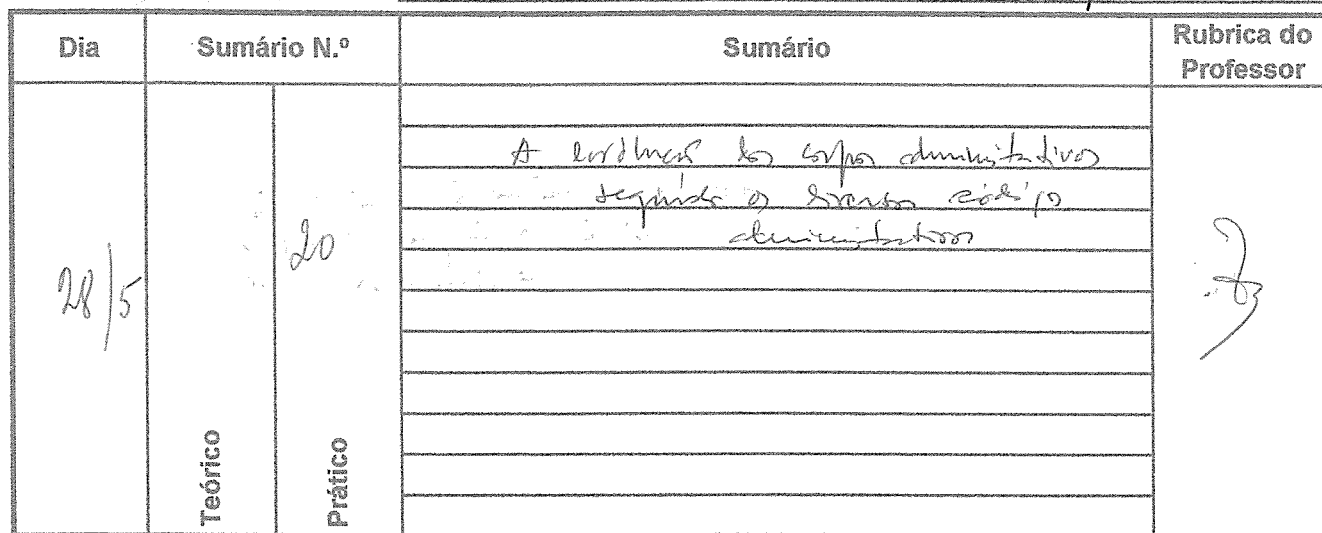 Dia
Sumário N.º
Sumário
Rubrica do
Professor
28/5
Teórico
20
Prático
A evolução dos corpos administrativos
segundo os diversos códigos
administrativos